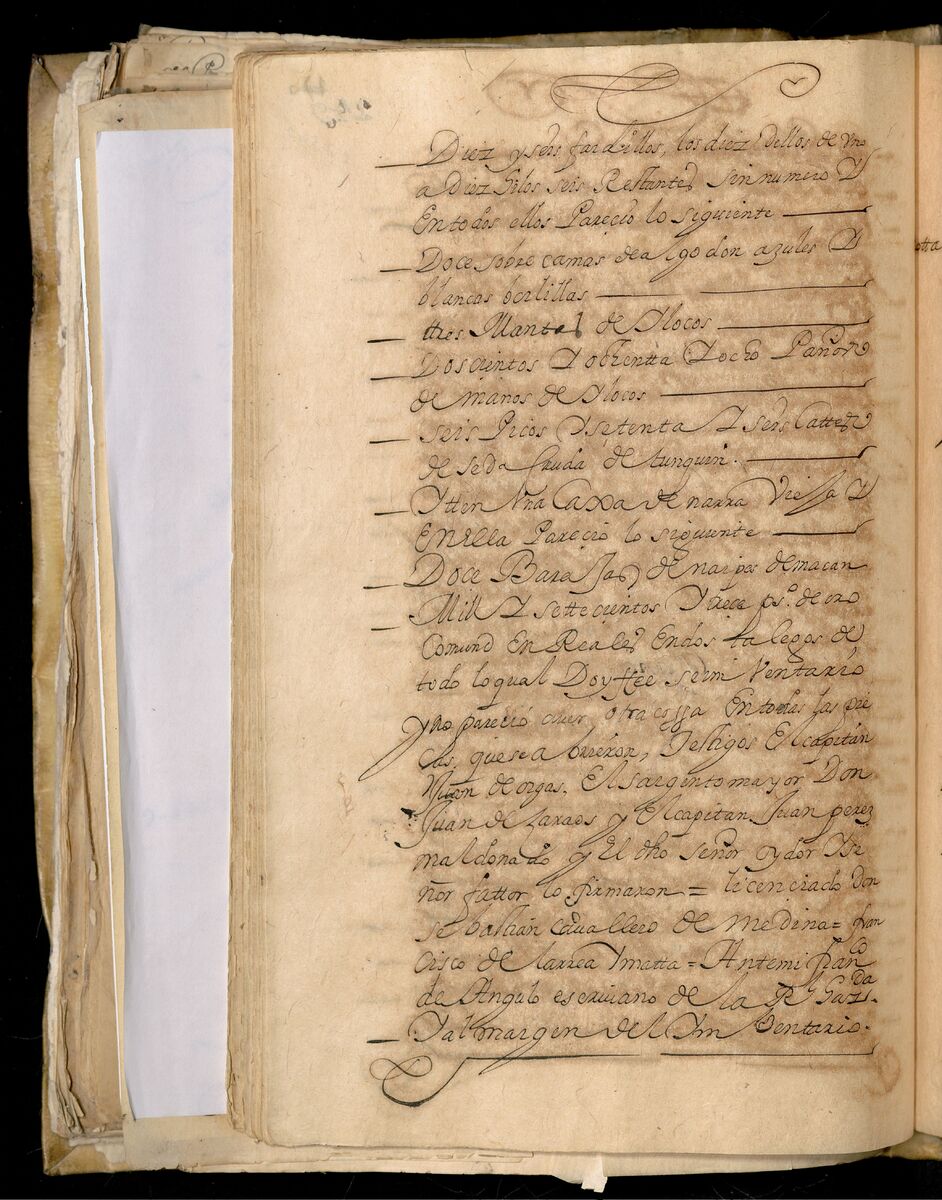 Diez y seis fardillos, los diez dellos de Vno
a Diez Ylos seis Restantes sin numero Y
En todos ellos Pareçio lo siguiente
Doce sobre camas de algodon azules Y
blancas borlillas
tres Mantel de Ylocos
Doscientos Y ochentta Y ocho Paños
de manos de Ylocos
seis Picos Y setenta Y seis Cattes
de seda Cruda de tunquin.
Ytten Vna Caxa de narra Viexa Y
En Ella Pareçio lo siguiente
Doce Barajas de naipes de macan
Mill Y settecientos Y trece ps.º de oro
Comund En Reales En dos talegos de
todo lo qual Doy ffee se im Ventario
y no pareçió aver otra cossa En todas las pie
ças, que se abrieron, Testigos El capitan
Juan de orgas, El sargento mayor Don
Juan de Laraos y El capitan Juan perez
maldonado y El dho señor oydor Y se
ñor fattor lo firmaron = licenciado Don
sebastian cavallero de medina = fran
cisco de larrea Y matta = Antemi fran.co
de Angulo escriuano de la Rl Haz.da
Y al margen del Ym Ventario.
otra